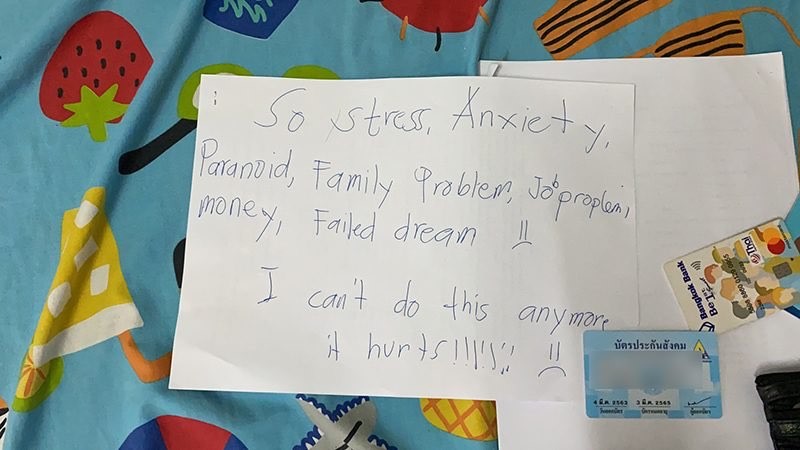 So stress, Anxiety,
Paranoid, Family Problem, Job proplem,
money, Failed dream
I can't do this anymore
it hurts!!!!!!!
Bangkok Bank
Be1st
บัตรประกันสังคม
4 มี.ค. 2562 3 มี.ค. 2565
วันออกบัตร บัตรหมดอายุ ผู้ออกบัตร